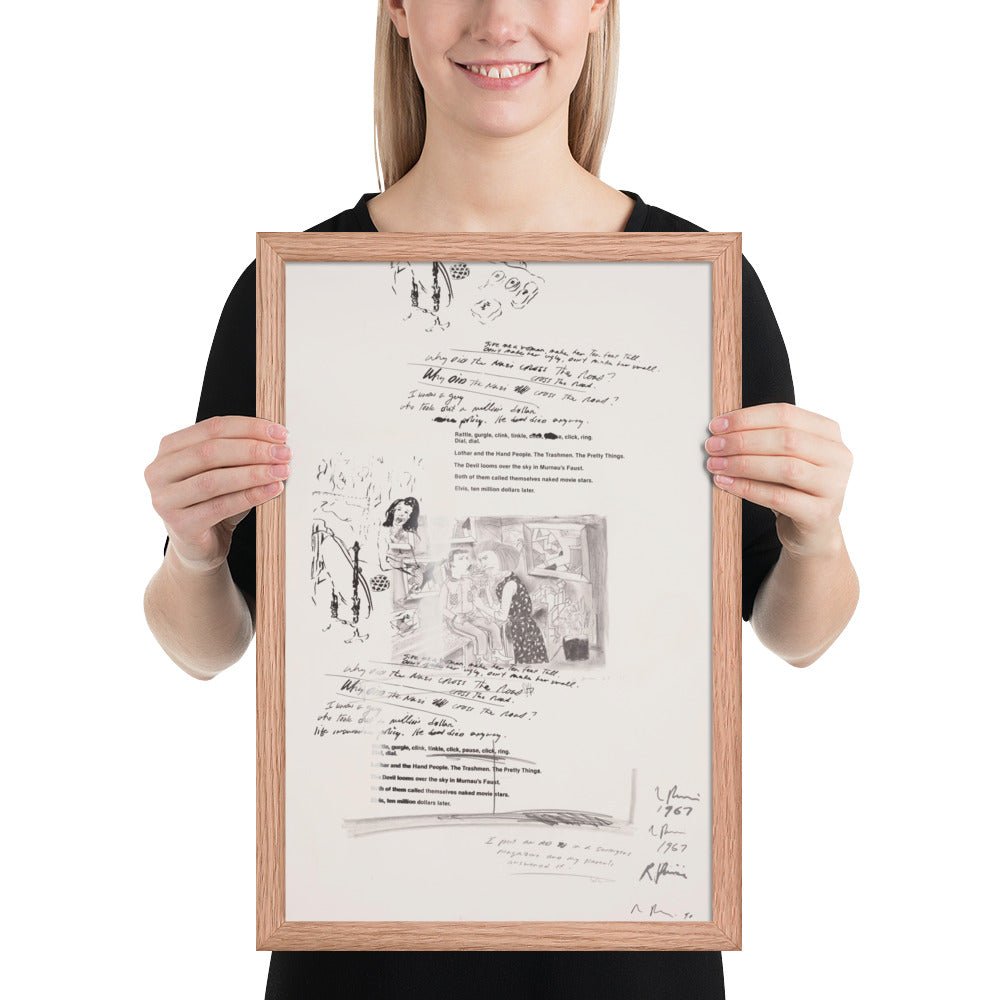 Give me a woman, make her Ten feet Tall
Don't make her ugly, don't make her small.
Why did the Nazi CROSS The Road?
Why DiD The Nazi cross The Road?
CROSS The Road.
I knew a guy
who took out a million dollar
policy. He died anyway.
Rattle, gurgle, clink, tinkle, click, click, ring.
Dial, dial.
Lothar and the Hand People. The Trashmen. The Pretty Things.
The Devil looms over the sky in Murnau's Faust.
Both of them called themselves naked movie stars.
Elvis, ten million dollars later.
Give me a woman, make her Ten feet Tall
Don't make her ugly, don't make her small.
Why did the Nazi CROSS The Road?
CROSS The Road.
Why DiD The Nazi cross The Road?
I knew a guy
who took out a million dollar
life insurance policy. He died anyway.
Rattle, gurgle, clink, tinkle, click, pause, click, ring.
Dial, dial.
Lothar and the Hand People. The Trashmen. The Pretty Things.
The Devil looms over the sky in Murnau's Faust.
Both of them called themselves naked movie stars.
Elvis, ten million dollars later.
1967
1967
I put an ad in a swingers
magazine and my parents
answered it.
R Prince